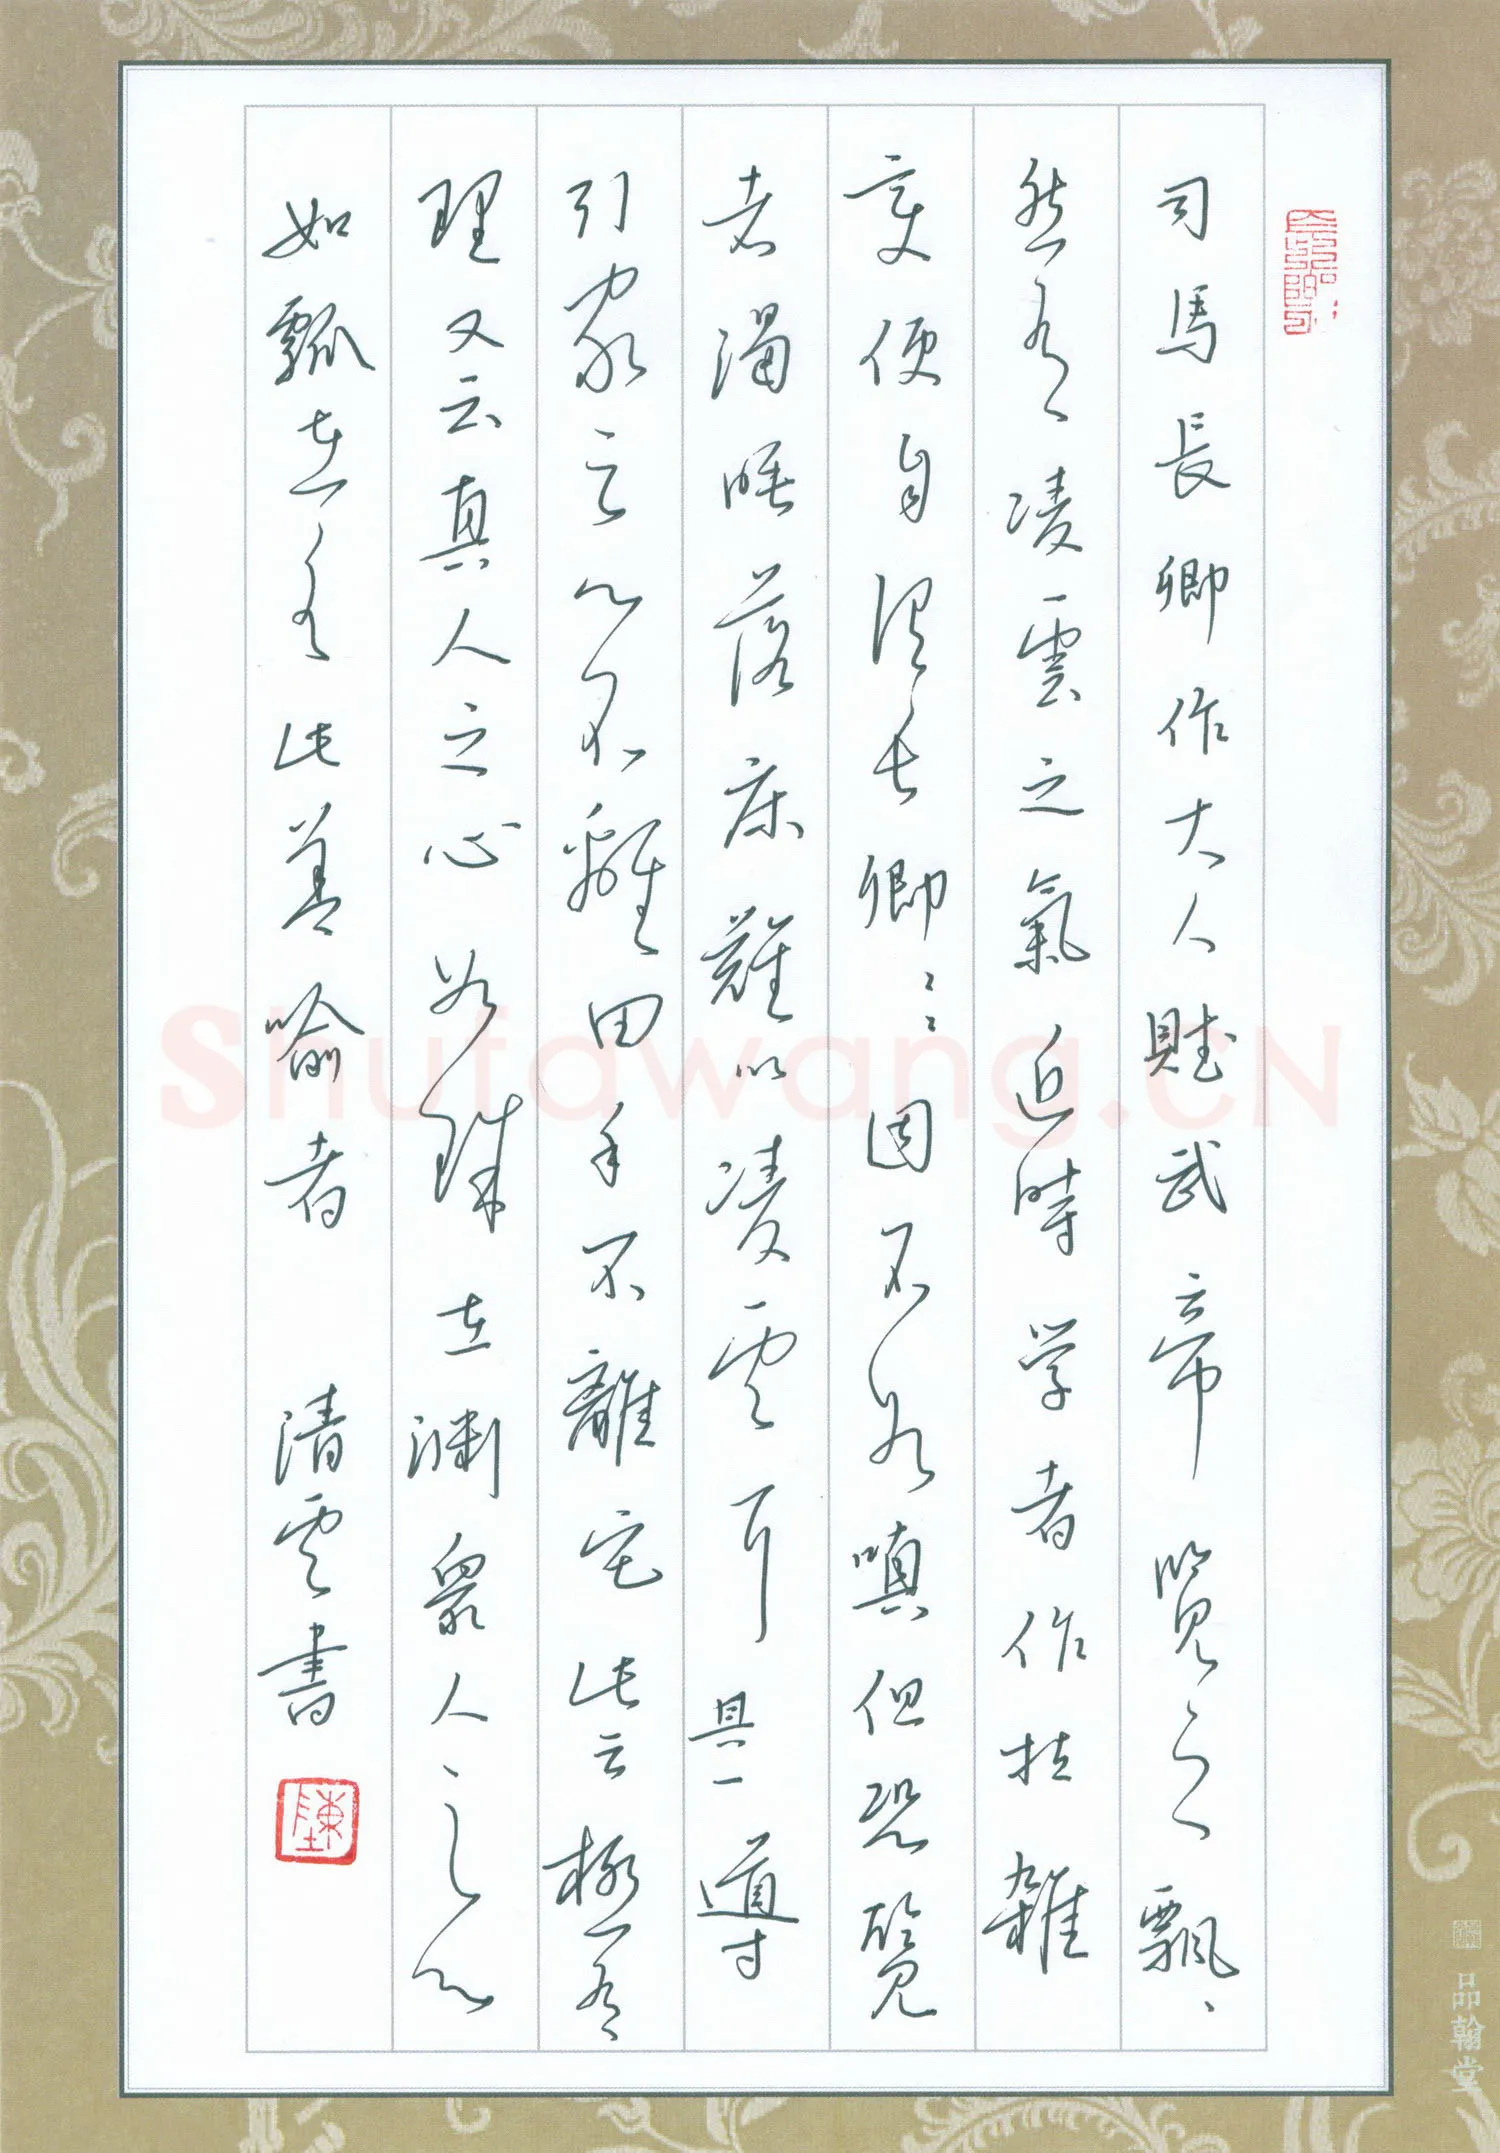 司馬長卿作大人賦武帝覽之飄、
然有凌雲之氣近時学者作拉雜
变便自謂長卿：：固不汝嗔但恐覽
者渴睡落床難以凌雲耳 導
引家言心不離田手不離宅此云極有
理又云真人之心如珠在渊眾人之心
如瓢在水此善喻者 清雲書
品翰堂
Shufawang.CN